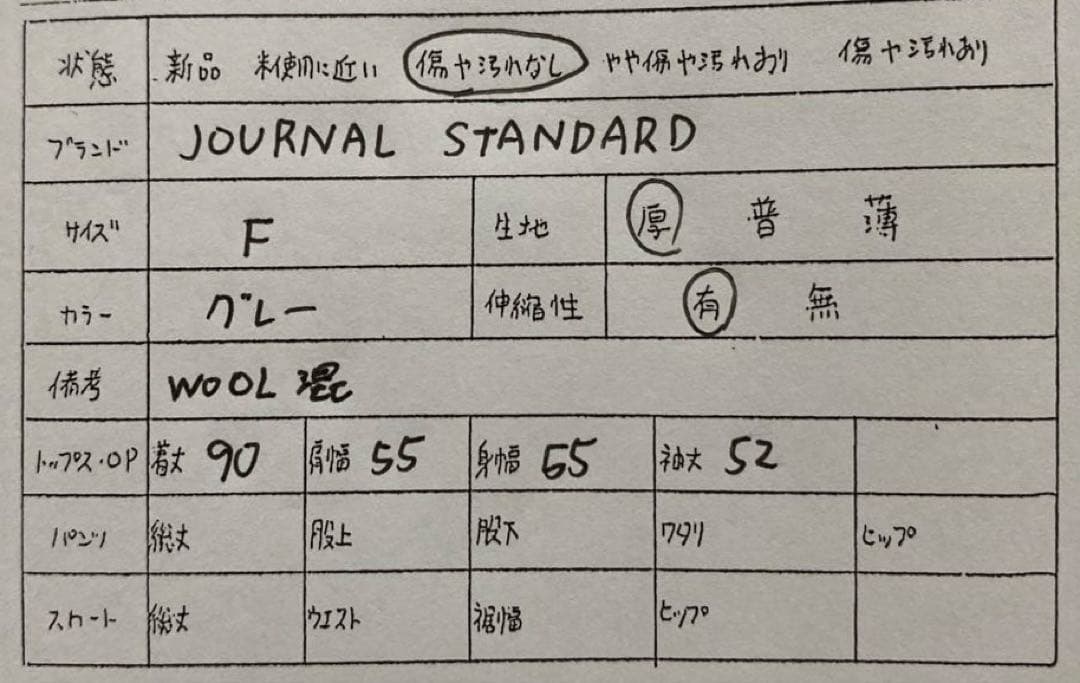 状態 新品 未使用に近い 傷や汚れなし やや傷や汚れあり 傷や汚れあり
ブランド JOURNAL STANDARD
サイズ F 生地 厚 普 薄
カラー グレー 伸縮性 有 無
備考 WOOL 混
トップス・OP 着丈 90 肩幅 55 身幅 55 袖丈 52
パンツ 総丈 股上 股下 ワタリ ヒップ
スカート 総丈 ウエスト 裾幅 ヒップ